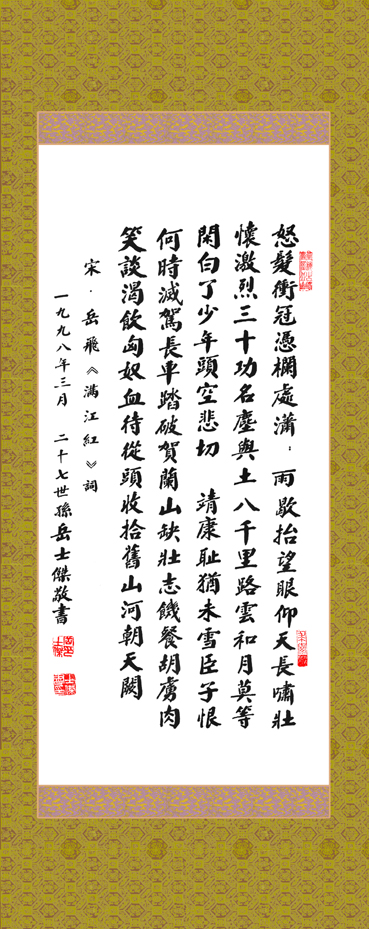 怒髮衝冠憑欄處瀟：雨歇抬望眼仰天長嘯壯
懷激烈三十功名塵與土八千里路雲和月莫等
閑白了少年頭空悲切 靖康耻猶未雪臣子恨
何時滅駕長車踏破賀蘭山缺壯志饑餐胡虜肉
笑談渴飲匈奴血待從頭收拾舊山河朝天闕
宋·岳飛《满江紅》詞
一九九八年三月 二十七世孫岳士傑敬書